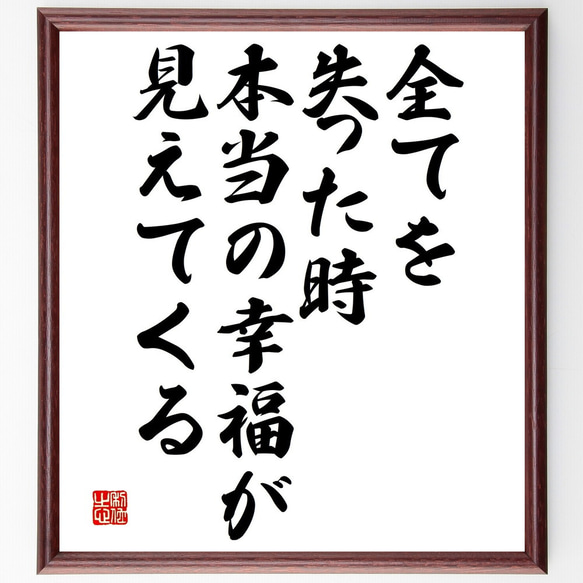 全てを
失った時
本当の幸福が
見えてくる